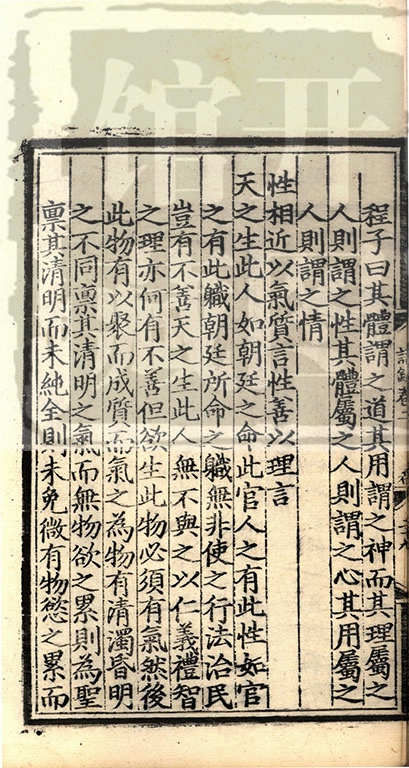 程子曰其體謂之道其用謂之神而其理屬之
人則謂之性其體屬之人則謂之心其用屬之
人則謂之情
性相近以氣質言性善以理言
天之生此人如朝廷之命此官人之有此性如官
之有此軄朝廷所命之軄無非使之行法治民
豈有不善天之生此人無不與之以仁義禮智
之理亦何有不善但欲生此物必須有氣然後
此物有以聚而成質而氣之為物有清濁昏明
之不同禀其清明之氣而無物欲之累則為聖
禀其清明而未純全則未免微有物慾之累而